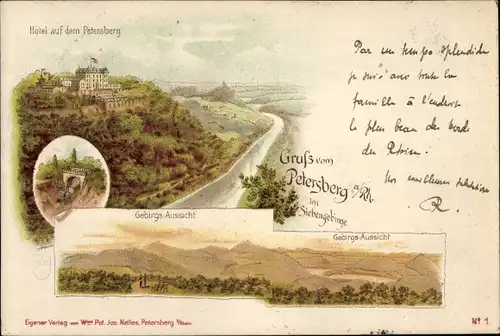 Hôtel auf dem Petersberg
Par un tempo splendide
je suis avec toute la
famille à l'endroit
le plus beau des bords
du Rhin.
Nos meilleures salutations
R.
Gruß vom
Petersberg a/Rh.
im
Siebengebirge
Gebirgs-Aussicht
Gebirgs-Aussicht
Eigener Verlag von Wwe Pet. Jos. Nelles, Petersberg
No 1